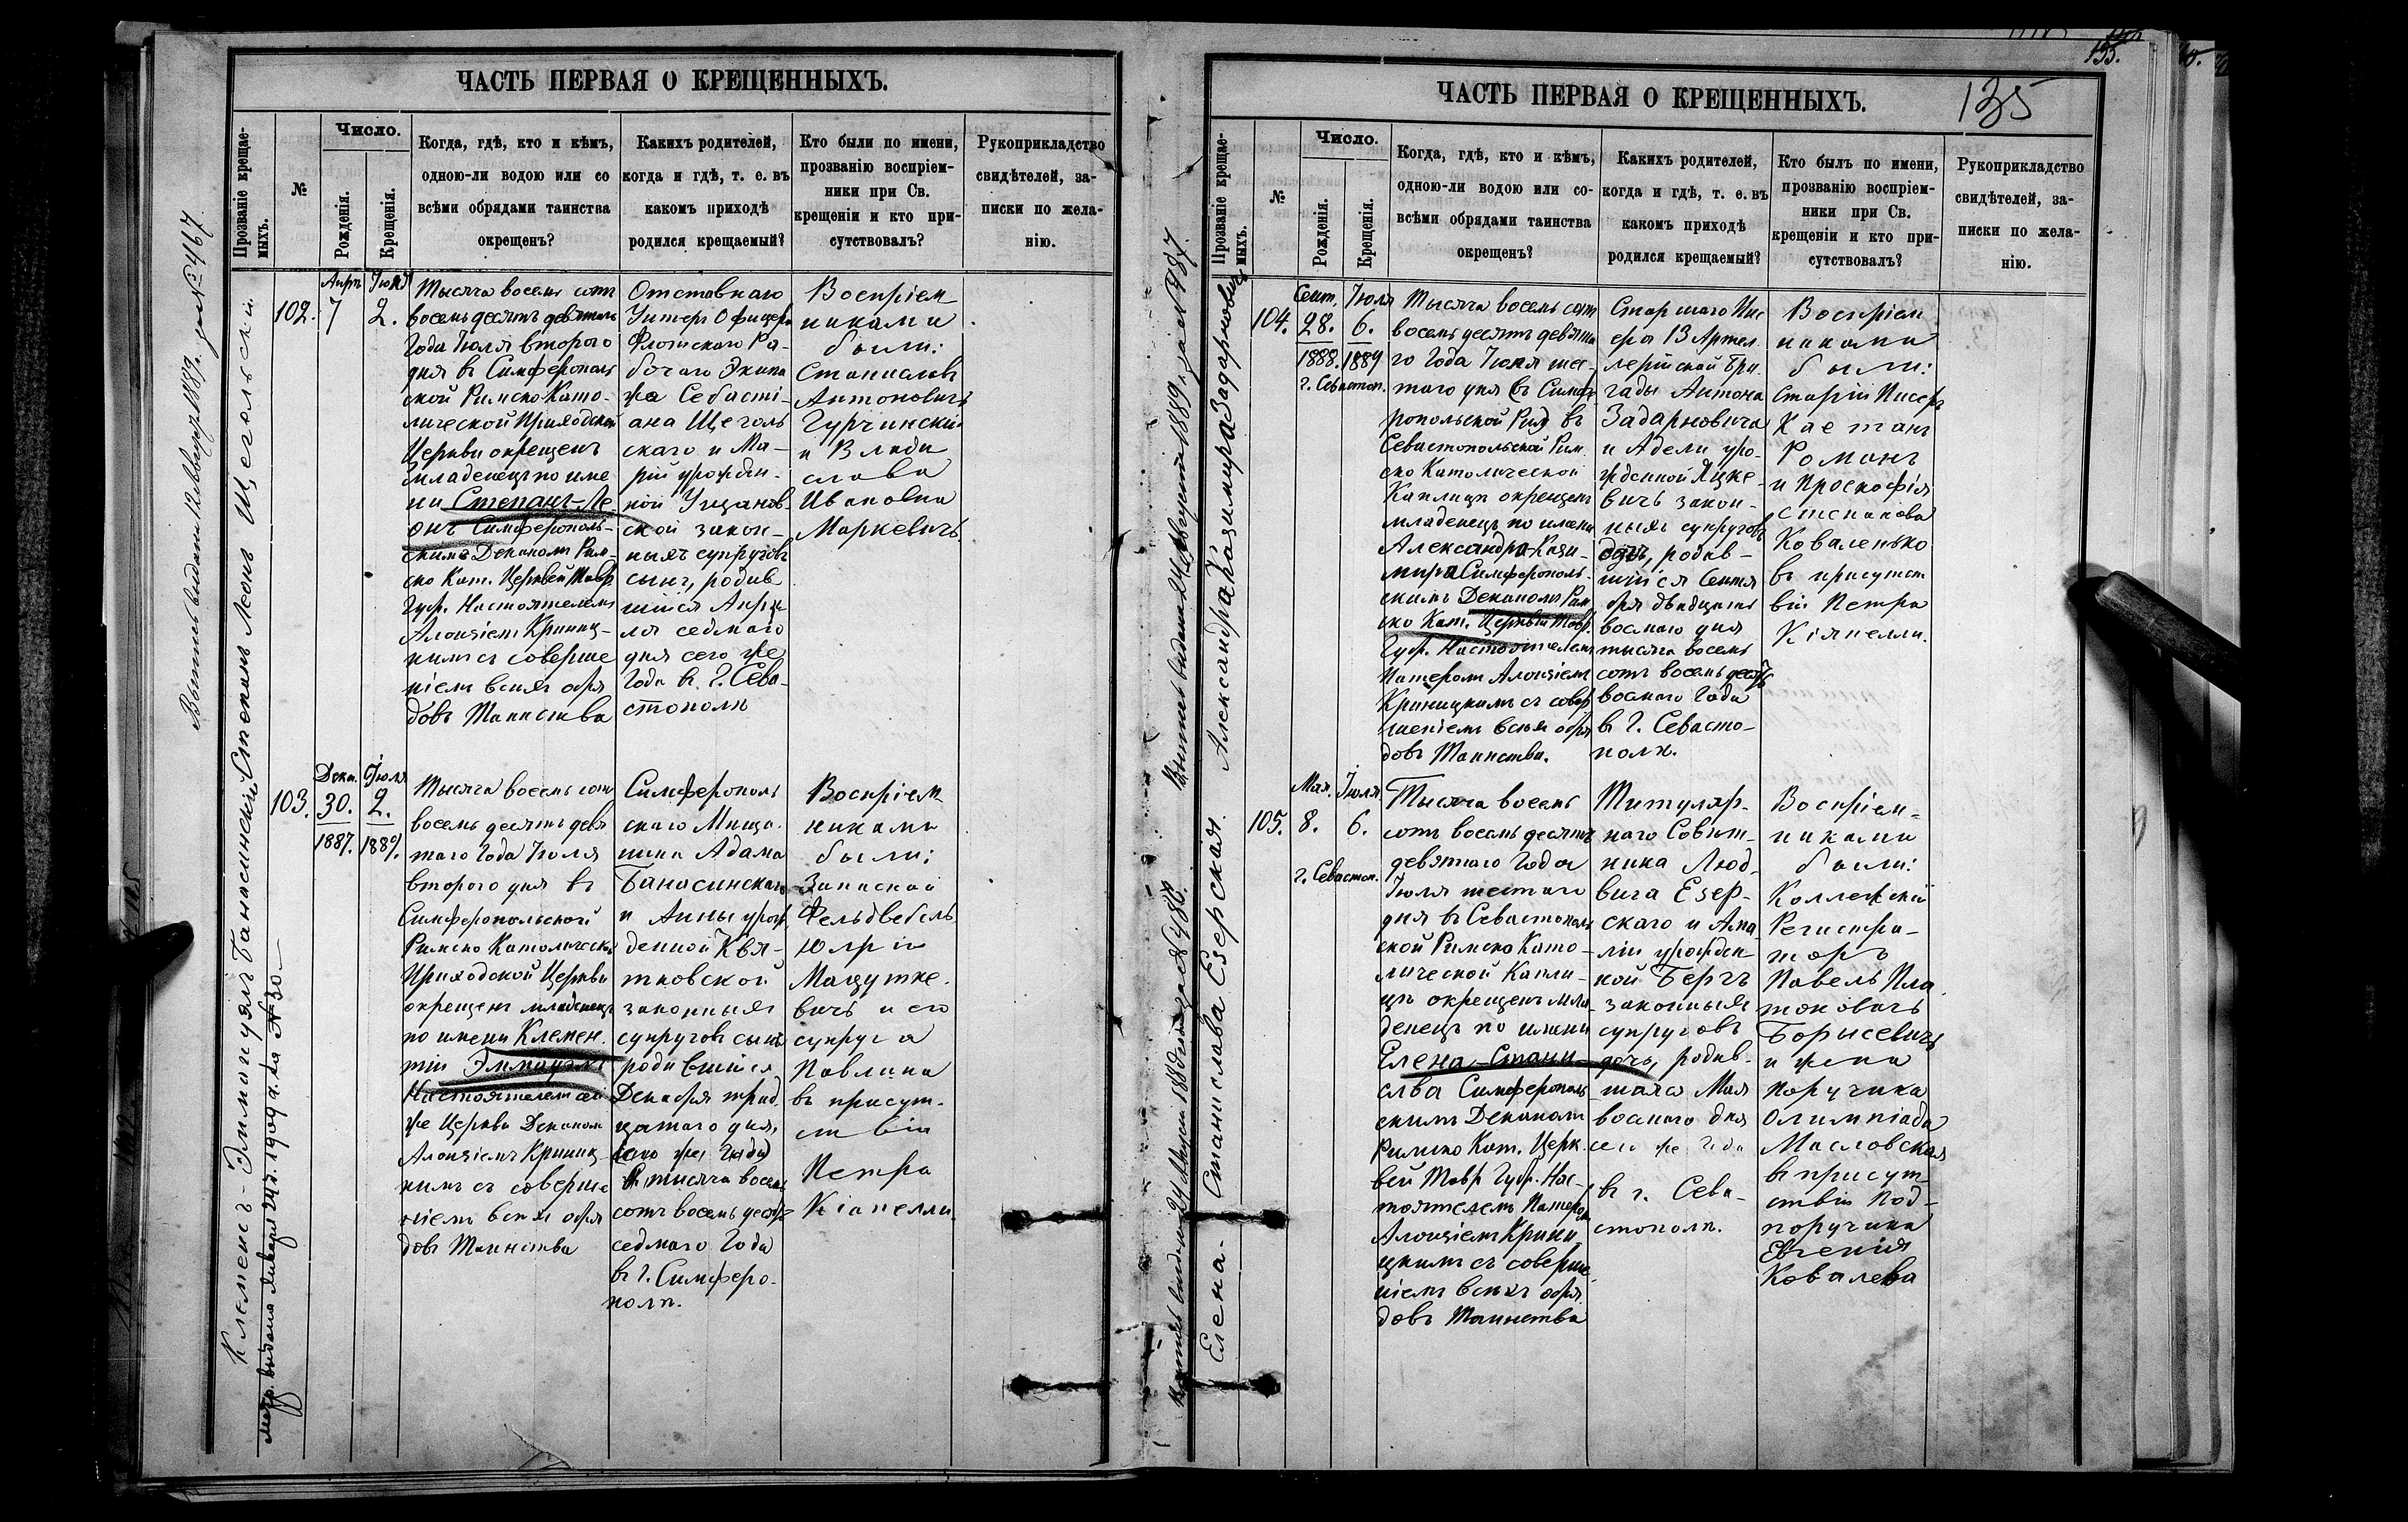 ЧАСТЬ ПЕРВАЯ О КРЕЩЕННЫХЪ.
Прозваніе крещае-
мыхъ.
№
Число.
Рожденія.
Крещенія.
Когда, гдѣ, кто и кѣмъ,
одною-ли водою или со
всѣми обрядами таинства
окрещенъ?
Какихъ родителей,
когда и гдѣ, т. е. въ
какомъ приходѣ
родился крещаемый?
Кто были по имени,
прозванію воспріем-
ники при Св.
крещеніи и кто при-
сутствовалъ?
Рукоприкладство
свидѣтелей, за-
писки по жела-
нію.
Степанъ Леонъ Щегольскій
102.
Апр. 7
Іюля 2.
Тысяча восемь сотъ
восемьдесятъ девятаго
Года Іюля втораго
дня въ Симферополь
ской Римско Като-
лической Приходской
Церкви окрещенъ
Младенецъ по име
ни Степанъ-Ле-
онъ Симферополь-
скимъ Деканомъ Рим-
ско Кат. Церквей Тавр.
Губ. Настоятелемъ
Алоизіемъ Криниц-
кимъ съ соверше
ніемъ всѣхъ обря
довъ Таинства
Отставнаго
Унтеръ Офицера
Флотскаго Ра-
бочаго Экипа
жа Себасті-
ана Щеголь
скаго и Ма-
ріи урожден-
ной
ской закон-
ныхъ супруговъ
сынъ, родив
шійся Апрѣ
ля седмаго
дня сего же
Года въ г. Сева-
стополѣ
Воспріем
никами
были:
Станиславъ
Антоновичъ
Гурчинскій
и Влади
слава
Ивановна
Маркевичъ
Клеменсъ-Эммануилъ Банасинскій
метр. выдана Января 24 д. 1904 г. за № 30
103.
Дека. 30.
1887.
Іюля 2.
1889.
Тысяча восемь сотъ
восемьдесятъ девя
таго Года Іюля
втораго дня въ
Симферопольской
Римско Католической
Приходской Церкви
окрещенъ младенецъ
по имени Клемен.
тій Эммануилъ
Настоятелемъ сей
же Церкви Деканомъ
Алоизіемъ Криниц
кимъ съ соверше
ніемъ всѣхъ обря
довъ Таинства
Симферополь
скаго Мѣща
нина Адама
Банасинскаго
и Анны урож
денной Квя-
тковской
законныхъ
супруговъ сынъ
родившійся
Декабря трид
цатаго дня,
(сего же Года)
тысяча восемь
сотъ восемьдесятъ
седмаго Года
въ г. Симферо-
полѣ.
Воспріем
никами
были:
Запасной
Фельдвебель
Юрій
Мацутке.
вичъ и его
супруга
Павлина
въ присут-
ствіи
Петра
Кіапелли.
135.
135
ЧАСТЬ ПЕРВАЯ О КРЕЩЕННЫХЪ.
Прозваніе крещае-
мыхъ.
№
Число.
Рожденія.
Крещенія.
Когда, гдѣ, кто и кѣмъ,
одною-ли водою или со-
всѣми обрядами таинства
окрещенъ?
Какихъ родителей,
когда и гдѣ, т. е. въ
какомъ приходѣ
родился крещаемый?
Кто былъ по имени,
прозванію воспріем-
ники при Св.
крещеніи и кто при-
сутствовалъ?
Рукоприкладство
свидѣтелей, за-
писки по жела-
нію.
Александра Казимира Задарновичъ
104.
Сент. 28.
1888.
Іюля 6.
1889
г. Севастоп.
Тысяча восемь сотъ
восемьдесятъ девята
го Года Іюля шес-
таго дня въ Симфе
ропольской въ
Севастопольской Рим.
ско Католической
Каплицѣ окрещенъ
младенецъ по имени
Александра-Кази-
мира Симферополь-
скимъ Деканомъ Рим
ско Кат. Церквей Тавр.
Губ. Настоятелемъ
Патеромъ Алоизіемъ
Криницкимъ съ совер
шеніемъ всѣхъ обря
довъ Таинства.
Старшаго Пис
аря 13 Артил
лерійской Бри
гады Антона
Задарновича
и Адели уро-
жденной Яцке-
вичъ закон-
ныхъ супруговъ
дочь, родив-
шійся Сентя
бря двадцать
восмаго дня
тысяча восемь
сотъ восемьдесятъ
восмаго Года
въ г. Севасто-
полѣ.
Воспріем
никами
были:
Старшій Писарь
Каетанъ
Романъ
и Проскофія
Степанова
Коваленько
въ присутст
віи Петра
Кіяпелли.
Елена-Станислава Езерская.
105.
Мая. 8.
Іюля 6.
г. Севастоп.
Тысяча восемь
сотъ восемьдесятъ
девятаго Года
Іюля шестаго
дня въ Севастополь
ской Римско Като-
лической Капли-
цѣ окрещенъ мла
денецъ по имени
Елена-Стани-
слва Симферополь
скимъ Деканомъ
Римско Кат. Церк.
вей Тавр Губ. Нас-
тоятелемъ Патеромъ
Алоизіемъ Крини
цкимъ съ соверше
ніемъ всѣхъ обря
довъ Таинства
Титуляр-
наго Совѣт-
ника Люд-
вига Езер-
скаго и Ама-
ліи урожден
ной Бергъ
законныхъ
супруговъ
дочь, родив-
шаяся Мая
восмаго дня
сего же Года
въ г. Сева-
стополѣ.
Воспріем-
никами
были:
Коллежскій
Регистра-
торъ
Павелъ Пла
тоновичъ
Борисевичъ
и жена
поручика
Олимпіада
Масловская
въ присут
ствіи Под-
поручика
Евгенія
Ковалева